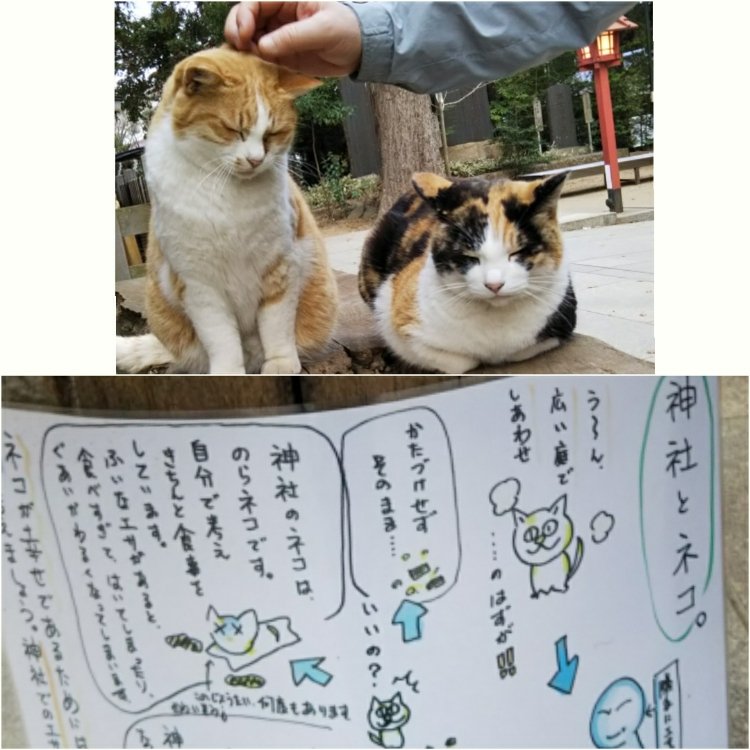 神社とネコ。
う〜ん、
広い庭で
しあわせ
‥‥のはずが!!
かたづけせず
そのまま‥‥
いいの?
神社のネコは、
のらネコです。
自分で考え
きちんと食事を
しています。
ふいなエサがあると、
食べすぎて、はいてしまったり、
ぐあいがわるくなってしまいます。
何度もあります
ネコが幸せであるためには
神社でのエサ
神